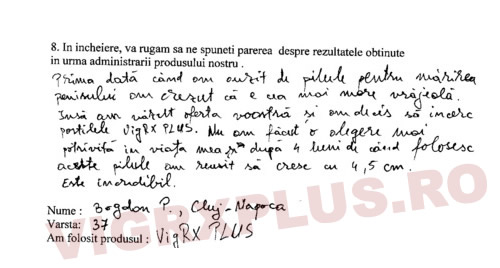 8. In incheiere, va rugam sa ne spuneti parerea despre rezultatele obtinute
in urma administrarii produsului nostru .
Prima dată când am auzit de pilule pentru mărirea
penisului am crezut că e cea mai mare vrăjeală.
Însă am văzut oferta voastră și am decis să încerc
pastilele VigRX PLUS. Nu am făcut o alegere mai
potrivită în viața mea și după 4 luni de când folosesc
aceste pilule am reusit să cresc cu 4,5 cm.
Este incredibil.
Nume : Bogdan P., Cluj-Napoca
Varsta: 37
Am folosit produsul : VigRX PLUS
VIGRXPLUS.RO